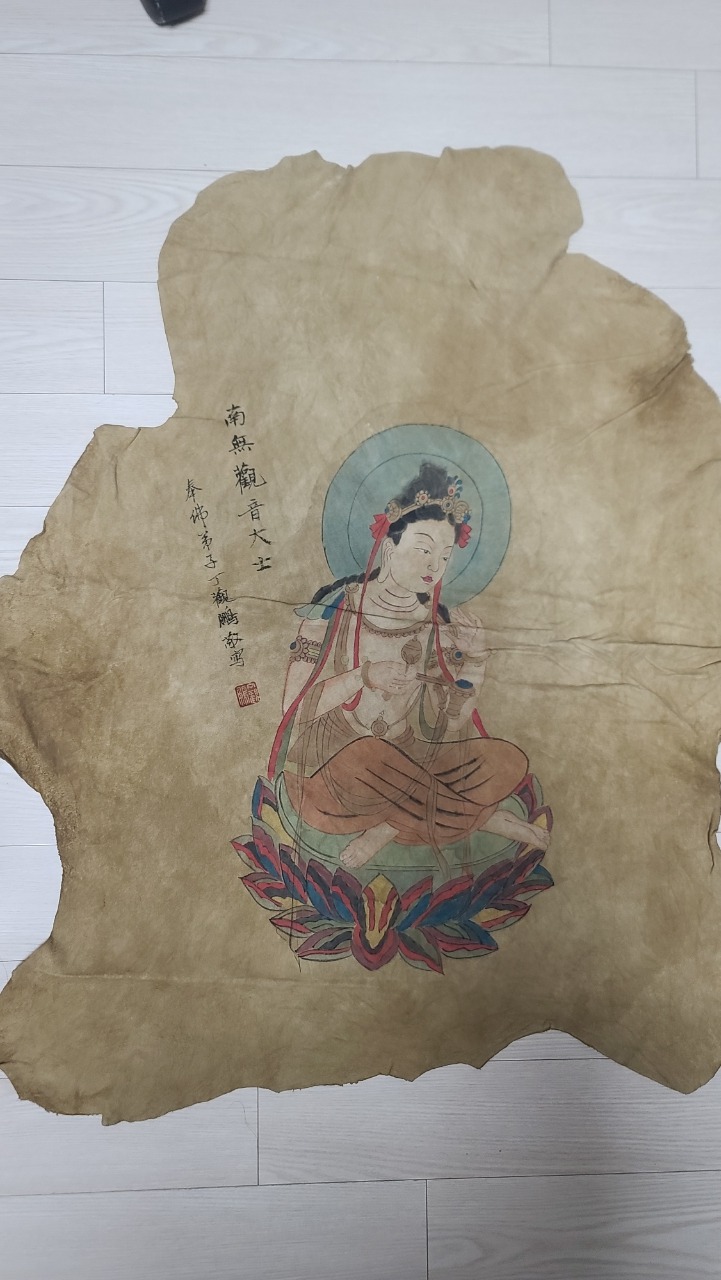 南無觀音大士
奉佛弟子丁觀鵬敬寫